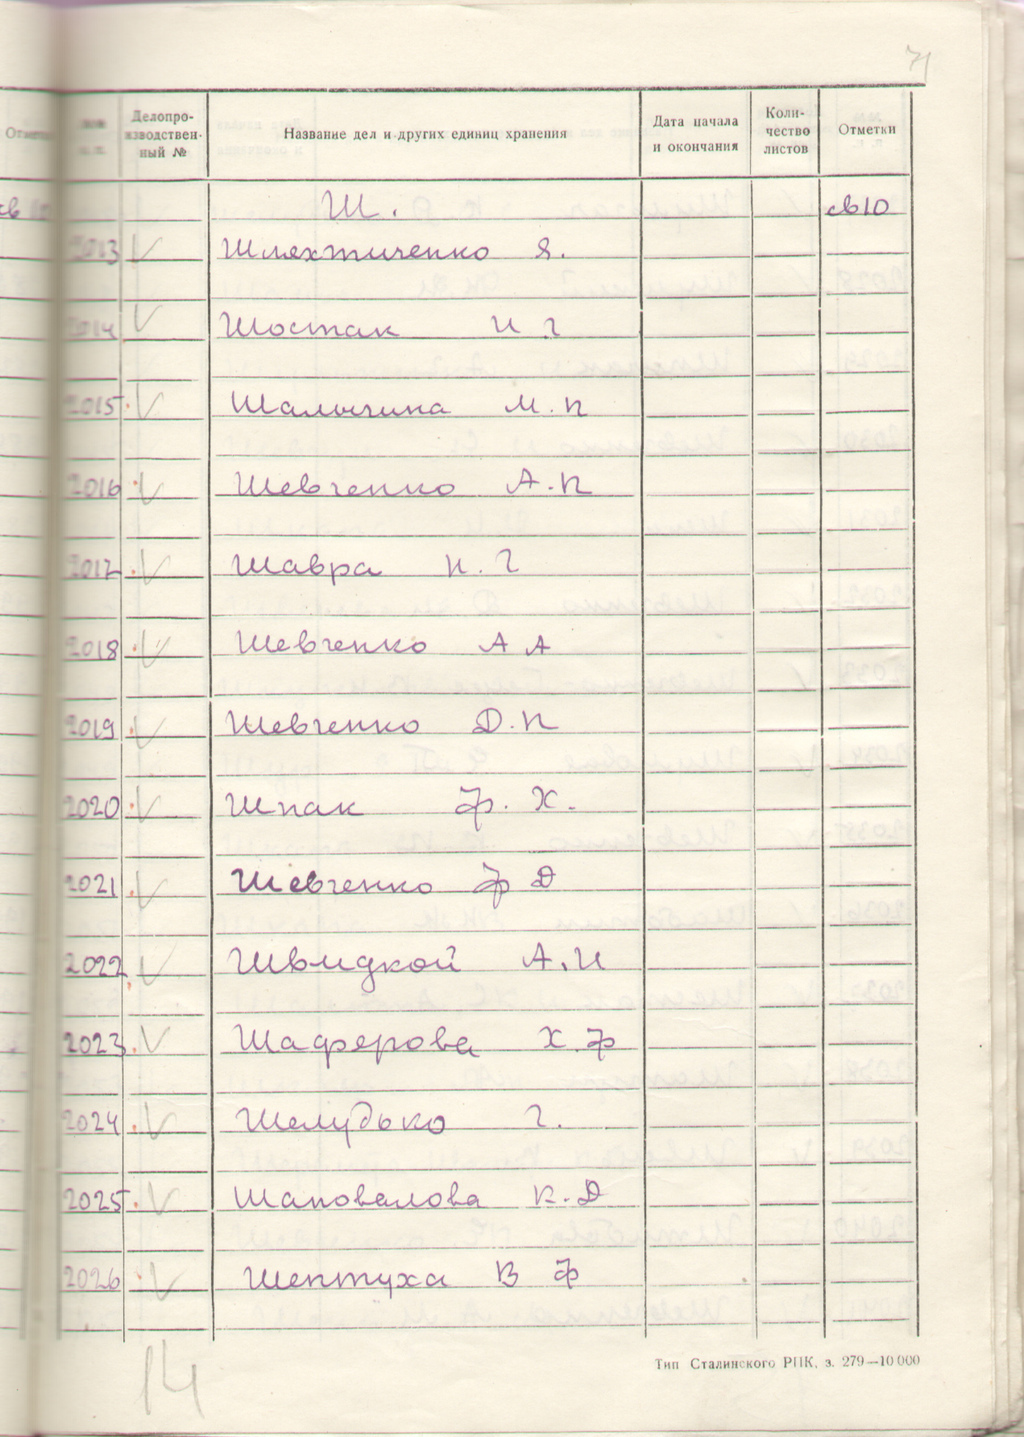 71
Отметки
Делопро-
изводствен-
ный №
Название дел и других единиц хранения
Дата начала
и окончания
Коли-
чество
листов
Отметки
св 10 Ш. св10
2013 Шляхтиченко Я.
2014 Шостак И Г
2015 Шалычина М. П
2016 Шевченко А. П
2017 Шавра Н. Г
2018 Шевченко А А
2019 Шевченко Д. П
2020 Шпак Ф. Х.
2021 Шевченко Ф Д
2022 Швидкой А. И
2023 Шаферова Х. Ф
2024 Шелудько Г.
2025 Шаповалова К. Д
2026 Шептуха В Ф
14
Тип Сталинского РПК, з. 279—10 000